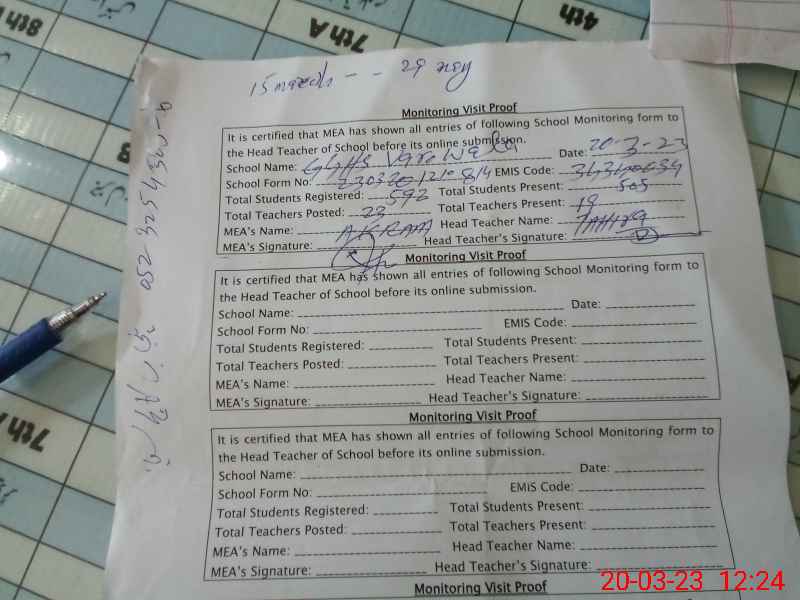 8th
7th A
4th
15 march - - 29 may
Monitoring Visit Proof
It is certified that MEA has shown all entries of following School Monitoring form to
the Head Teacher of School before its online submission.
School Name: GGHS Date: 20-3-23
School Form No: EMIS Code:
Total Students Registered: 592 Total Students Present: 505
Total Teachers Posted: 23 Total Teachers Present: 19
MEA's Name: AKRAM Head Teacher Name: TAHIRA
MEA's Signature: Head Teacher's Signature:
Monitoring Visit Proof
It is certified that MEA has shown all entries of following School Monitoring form to
the Head Teacher of School before its online submission.
School Name: Date:
School Form No: EMIS Code:
Total Students Registered: Total Students Present:
Total Teachers Posted: Total Teachers Present:
MEA's Name: Head Teacher Name:
MEA's Signature: Head Teacher's Signature:
Monitoring Visit Proof
It is certified that MEA has shown all entries of following School Monitoring form to
the Head Teacher of School before its online submission.
School Name: Date:
School Form No: EMIS Code:
Total Students Registered: Total Students Present:
Total Teachers Posted: Total Teachers Present:
MEA's Name: Head Teacher Name:
MEA's Signature: Head Teacher's Signature:
Monitoring Visit Proof
7th A
20-03-23 12:24